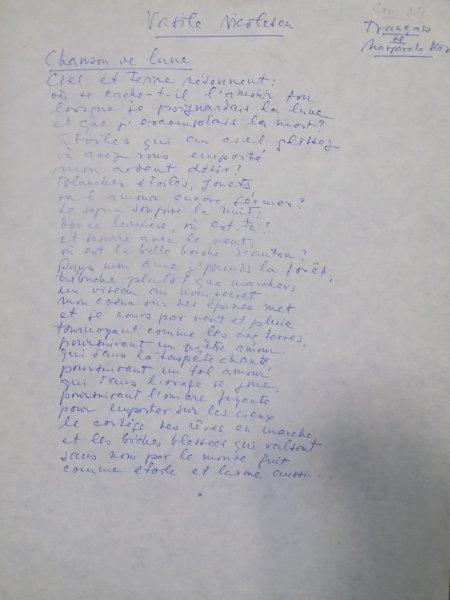 Vasile Nicolescu
Français
de
Margareta
Chanson de lune
Ciel et terre résonnent:
où se cache-t-il l'amour
lorsque je poignardais la lune
et que j' la mort?
Etoiles qui au ciel glissez
où avez vous emporté
mon ardent désir?
Blanches étoiles, jouets,
va l'amour encore fermer?
Le sapin soupire la nuit:
douce lumière, où est-tu?
et murmure avec le vent:
où est la belle bouche d'antan?
Dans mon âme j'prends la forêt,
trébuche plutôt que marcher,
un oiseau au nom secret
mon coeur sur des épines met
et je cours par vent et pluie
tournoyant comme les cinq terres,
poursuivant un amour
qui dans la tempête chante,
poursuivant un fol amour
qui dans l'orage se joue,
poursuivant l'ombre fuyante
pour emporter sur les cieux
le cortège des rêves en marche
et les biches blessées qui valsent
sans nom par le monde fuit
comme étoile et larme aussi...
*